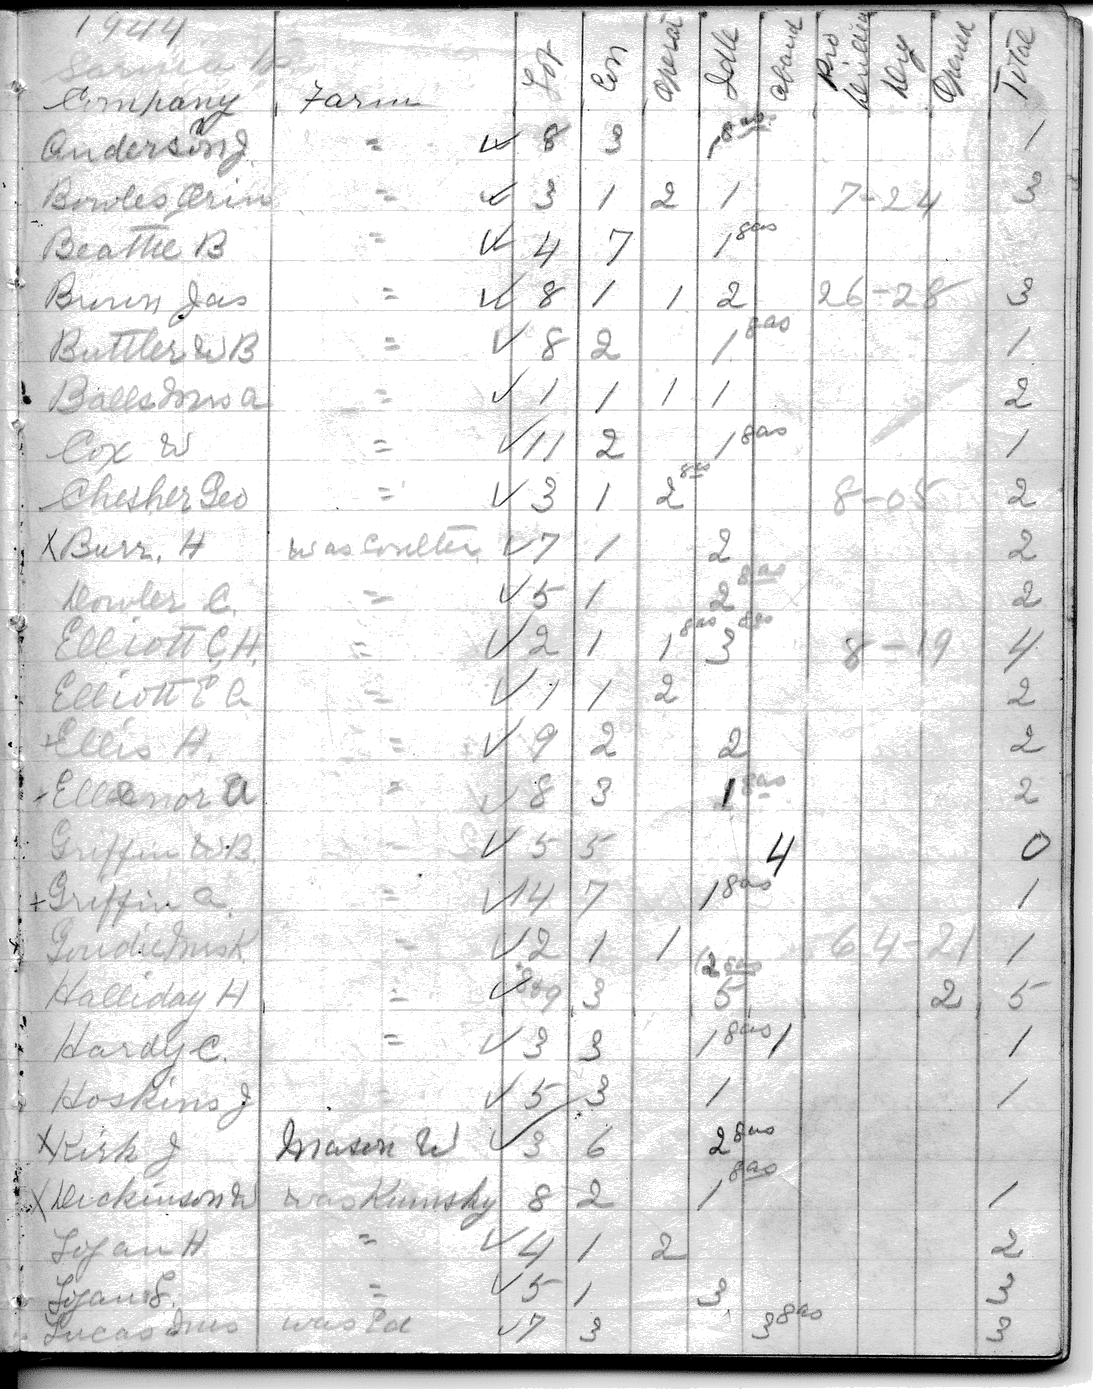 1944
Sarnia
Company Farm Lot Con Operat Idle aband Pro Drilled Dry Opened Total
Anderson J. " ✓ 8 3 1 gas 1
Bowles Orin " ✓ 3 1 2 1 7-24 3
Beattie B " ✓ 4 7 1 gas
Bunn Jas " ✓ 8 1 1 2 26-28 3
Buttler W B " ✓ 8 2 1 gas 1
Balls Mrs a " ✓ 1 1 1 1 2
Cox W " ✓ 11 2 1 gas 1
Chesher Geo " ✓ 3 1 2 gas 8-05 2
X Burr, H was Coulter ✓ 7 1 2 2
Dowler C. " ✓ 5 1 2 gas 2
Elliott C, H. " ✓ 2 1 1 gas 3 gas 8-19 4
Elliott E a " ✓ 1 1 2 2
Ellis H. " ✓ 9 2 2 2
+ Elleanor a " ✓ 8 3 1 gas 2
Griffin W.B. " ✓ 5 5 4 0
+ Griffin a. " ✓ 14 7 1 gas 1
Goudie Mrs K " ✓ 2 1 1 6 4-21 1
Halliday H " ✓ 8&9 3 (2 gas 5 2 5
Hardy C. " ✓ 3 3 1 gas 1 1
Hoskins J " ✓ 5 3 1 1
X Kirk J Mason W ✓ 3 6 2 gas
X Dickinson W was Kumsky 8 2 1 gas 1
Logan H " ✓ 4 1 2 2
Logan S. " ✓ 5 1 3 3
Lucas Mrs was Ed ✓ 7 3 3 gas 3